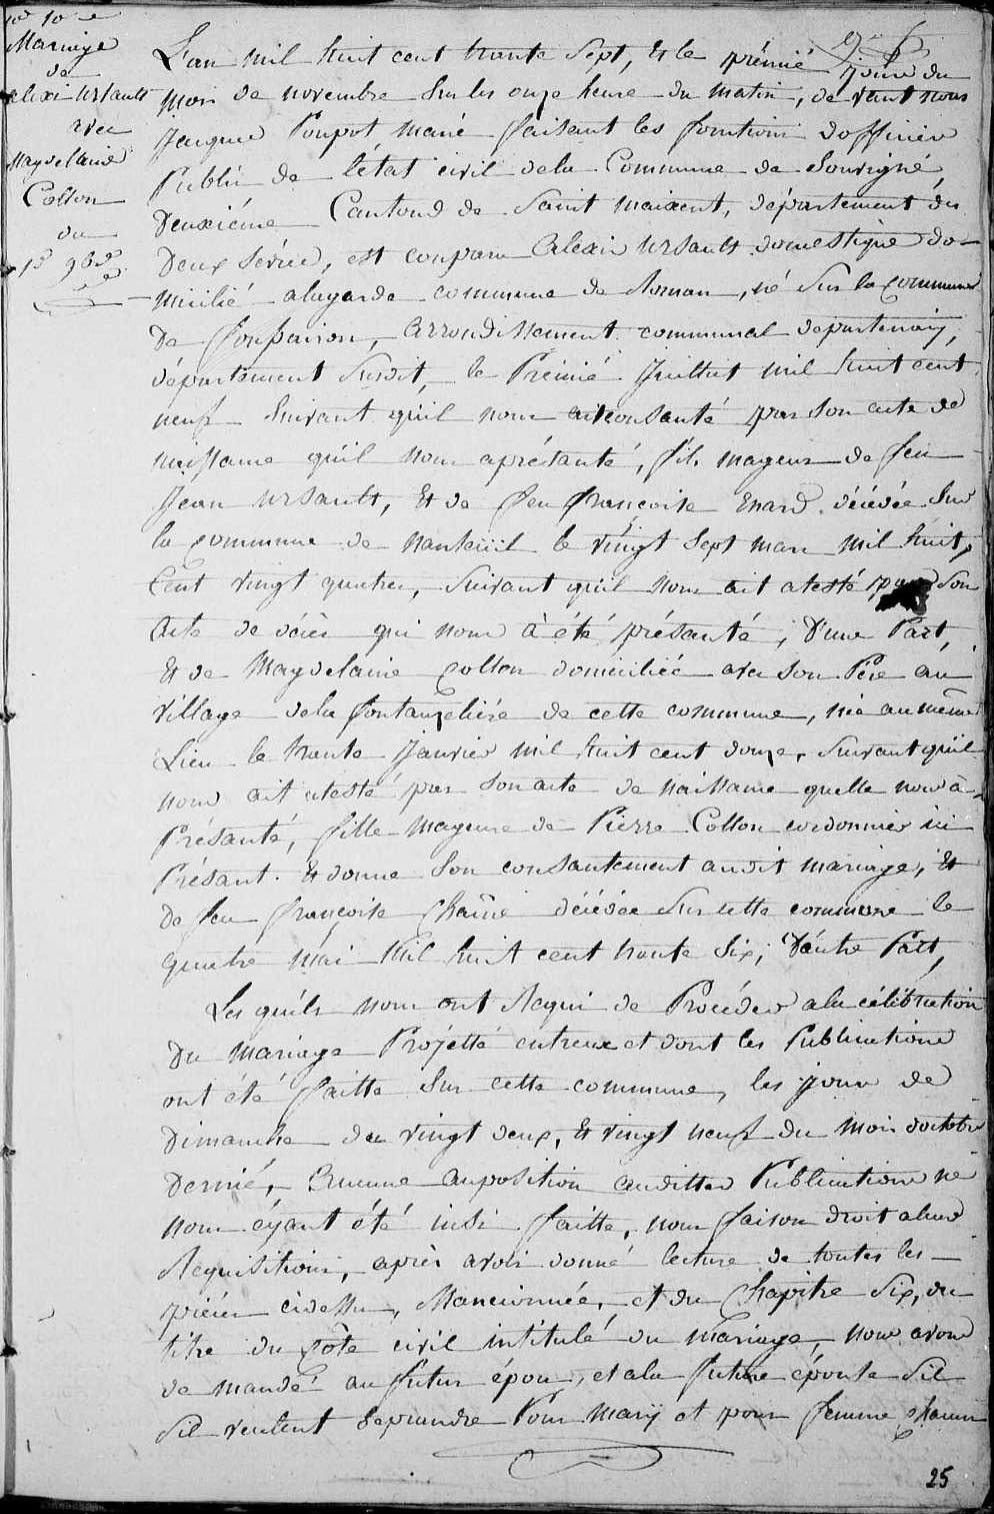 Mariage
de
alexi Ursault
avec
Magdelaine
Collon
du
1er 9bre
L'an mil huit cent trante sept, et le prémié jour du
mois de novembre sur les onze heure du matin, de vant nous
Jacque Poupot maire faisant les fonctions d'officier
Public de l'état civil dela Commune de Souvigné,
Deuxiéme Cantond de Saint maixent, département des
Deux Sévres, est comparu Alexis Ursault domestique do-
micilié alagarde commune de Romans, né sur la commune
De fonpairon, Arrondissement communal departenay,
département susdit, le Prémié Juillet mil huit cent
neuf suivant qu'il nous
naissance qu'il nous aprésanté, fils mageur de feu
Jean Ursault, et de feu françoise Enard décédée sur
la commune de nanteüil le vingt sept mars mil huit
Cent vingt quatre, suivant qu'il nous ait atesté par son
Acte de décès qui nous à été présanté, d'une Part,
et de Magdelaine Collon domiciliée avec son Père au
village dela fontanzeliére de cette commune, née aumême
Lieu le trante Janvier mil huit cent douze, suivant qu'il
nous ait atesté par son acte de naissance quelle nous à
Présanté, fille mageure de Pierre Collon cordonnier ici
Présant. et donne son consantement audit mariage, et
De feu françoise Chaine décédée sur cette commune le
quatre mai mil huit cent trante six, D'autre Part,
Les quéls nous ont Requi de Procéder ala célébration
Du mariage Projétté entreux et dont les Publications
ont été faitte sur cette commune, les jours de
Dimanche du vingt deux, et vingt neuf du mois doctobre
Dernié, Aucune auposition auditte Publications ne
nous éyant été insi faitte, nous faison droit aleur
Requisitions, après avoir donné lecture de toutes les
piéces cidessu, Mancionnée, et du Chapitre six, du
titre du Côte civil intitulé du Mariage, nous avons
de mandé au futur époux, et ala future épouse sil
sil veulent seprandre Pour Mary et pour femme chacun
25